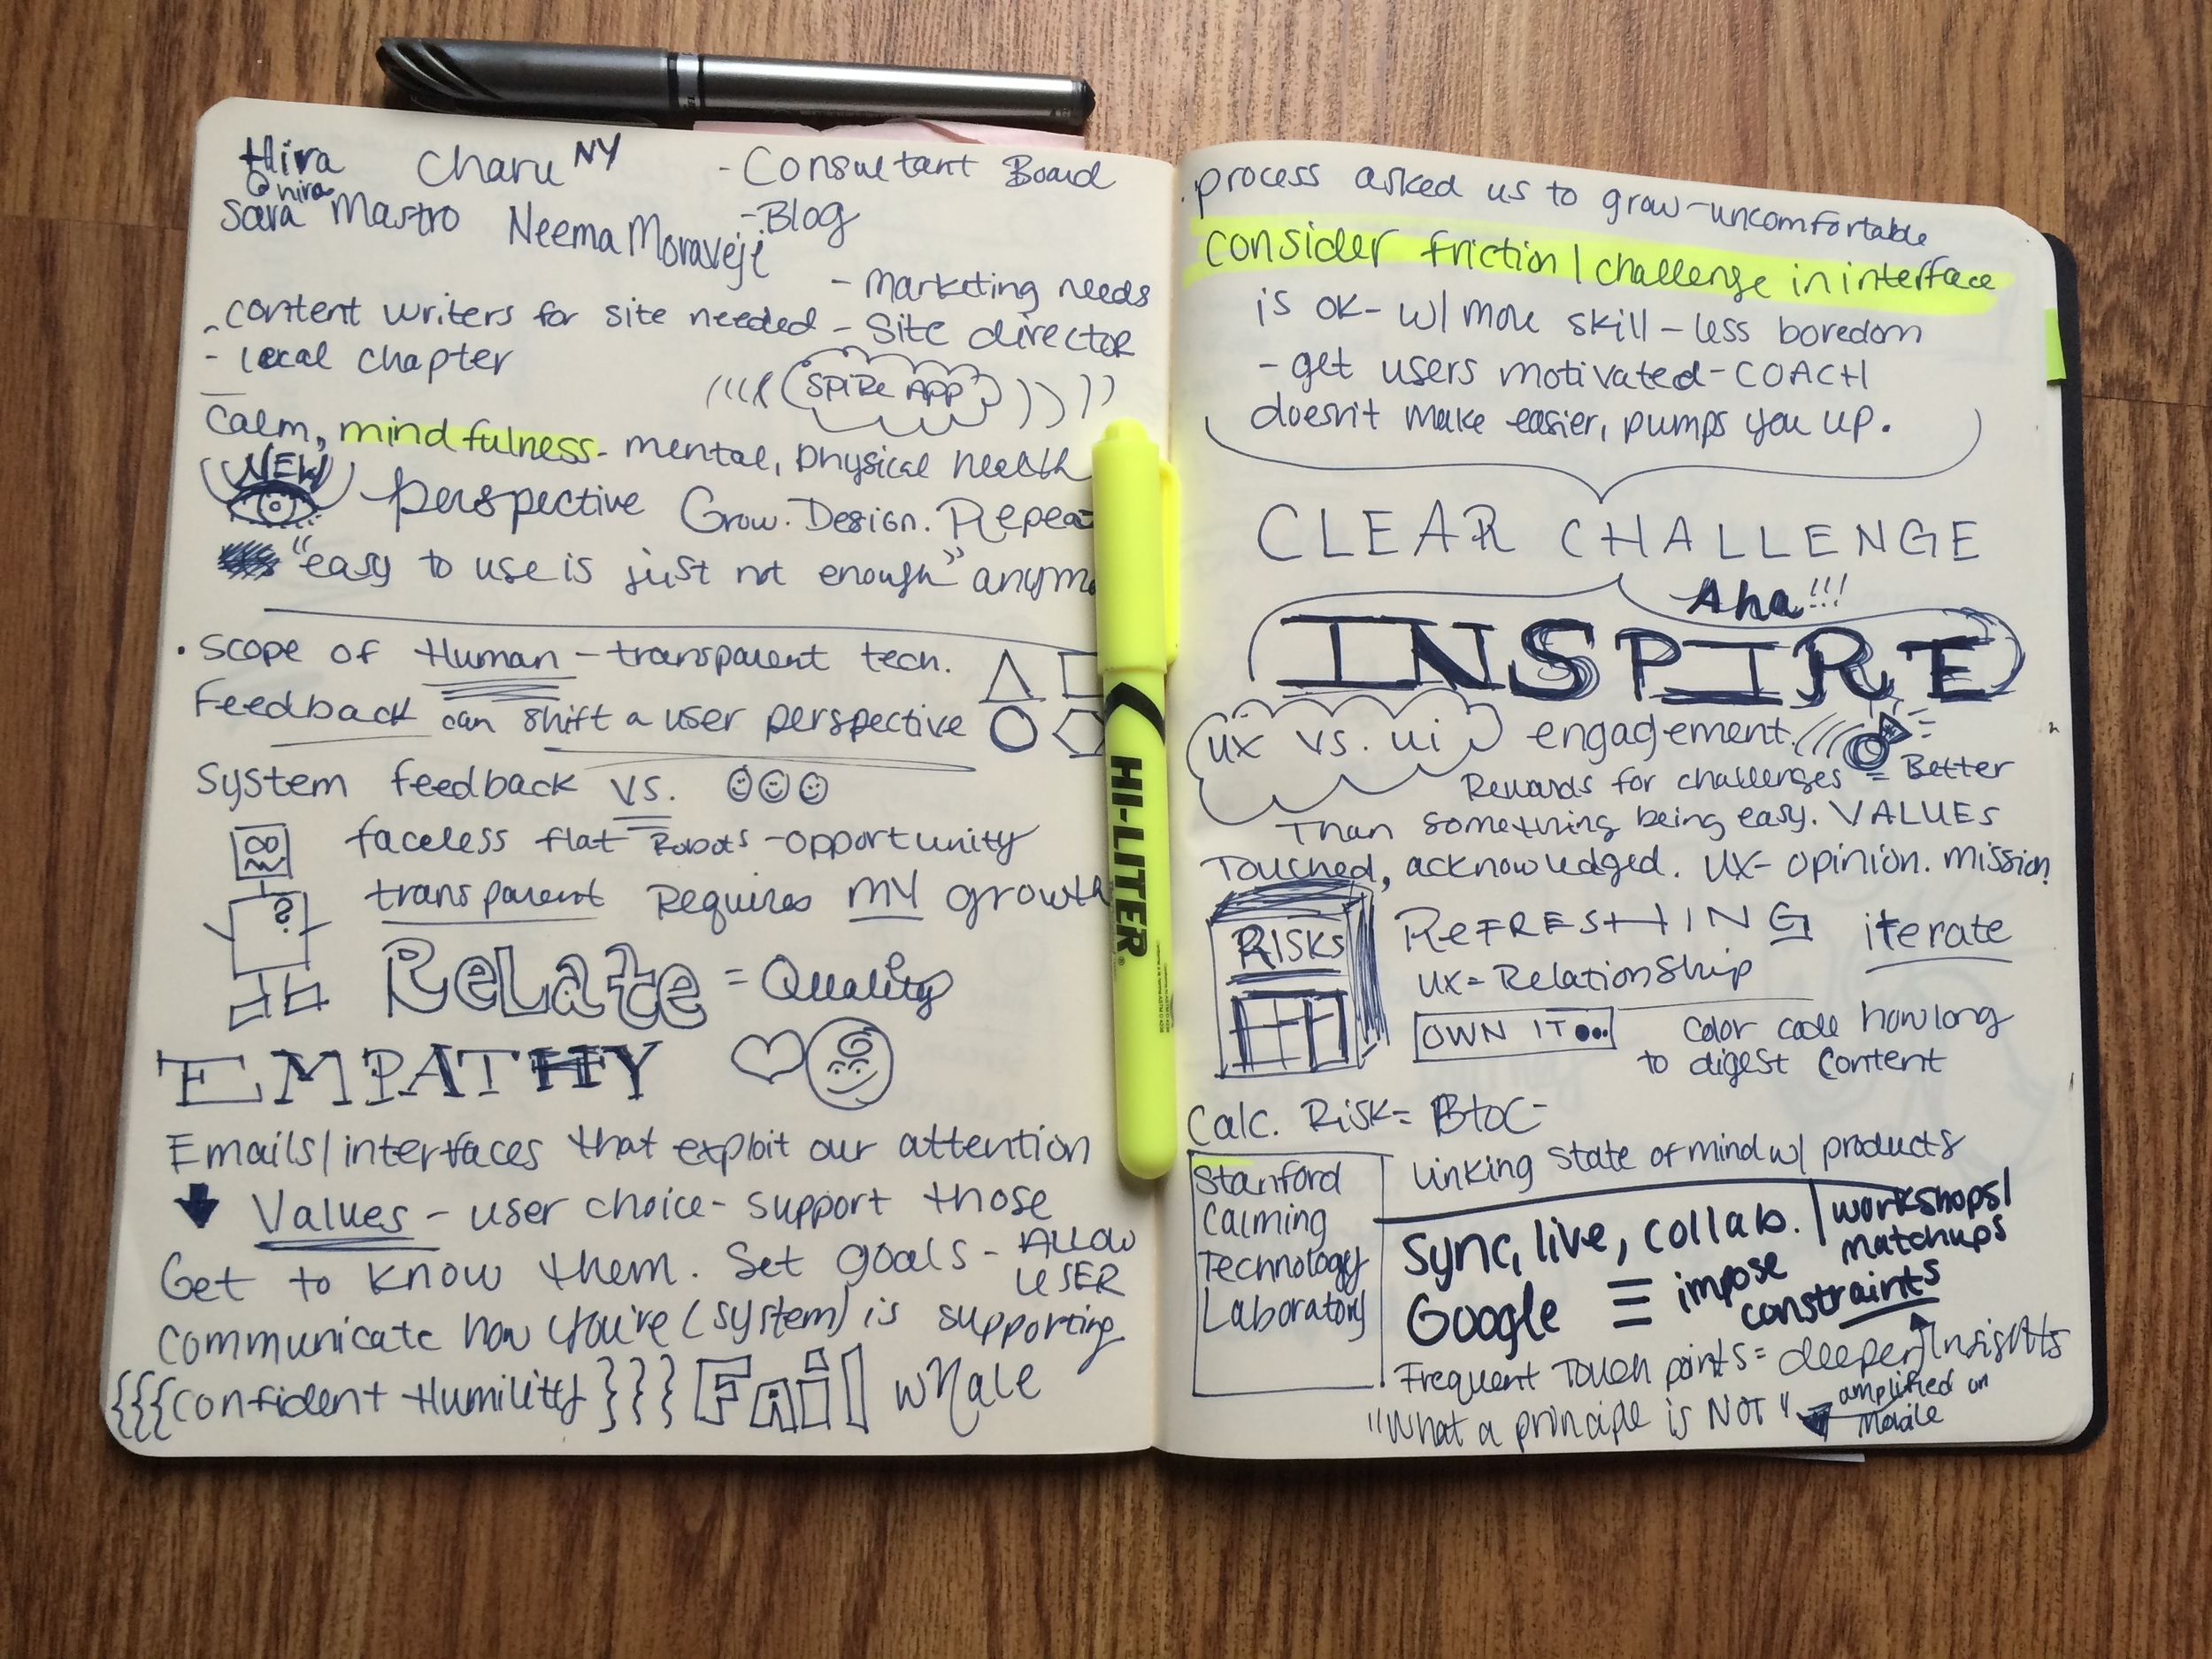 Hira Charu NY - Consultant Board
@hira
Sara Mastro Neema Moraveji - Blog
- marketing needs
- content writers for site needed - Site director
- local chapter
(((( SPIRE APP ))))
Calm, mindfulness - mental, physical health
NEW
perspective Grow. Design. Repeat
"easy to use is just not enough" anymo
• Scope of Human - transparent tech.
Feedback can shift a user perspective
System feedback vs.
faceless flat Robots - opportunity
?
transparent Requires MY growth
RELATE = Quality
EMPATHY
Emails/interfaces that exploit our attention
Values - user choice - support those
Get to know them. Set goals - ALLOW
USER
communicate how you're (system) is supporting
{{{confident Humility}}} FAIL whale
HI-LITER
. process asked us to grow - uncomfortable
consider friction / challenge in interface
is ok - w/ more skill - less boredom
- get users motivated - COACH
doesn't make easier, pumps you up.
CLEAR CHALLENGE
Aha!!!
INSPIRE
ux vs. ui engagement.
Rewards for challenges = Better
Than something being easy. VALUES
Touched, acknowledged. UX - opinion. mission
RISKS REFRESHING iterate
UX = Relationship
OWN IT... Color code how long
to digest content
Calc. Risk = BtoC -
linking state of mind w/ products
Stanford
Calming
Technology
Laboratory
Sync, live, collab. | workshops/
matchups
Google ≡ impose
constraints
Frequent Touch points = deeper insights
"What a principle is NOT" amplified on
Mobile